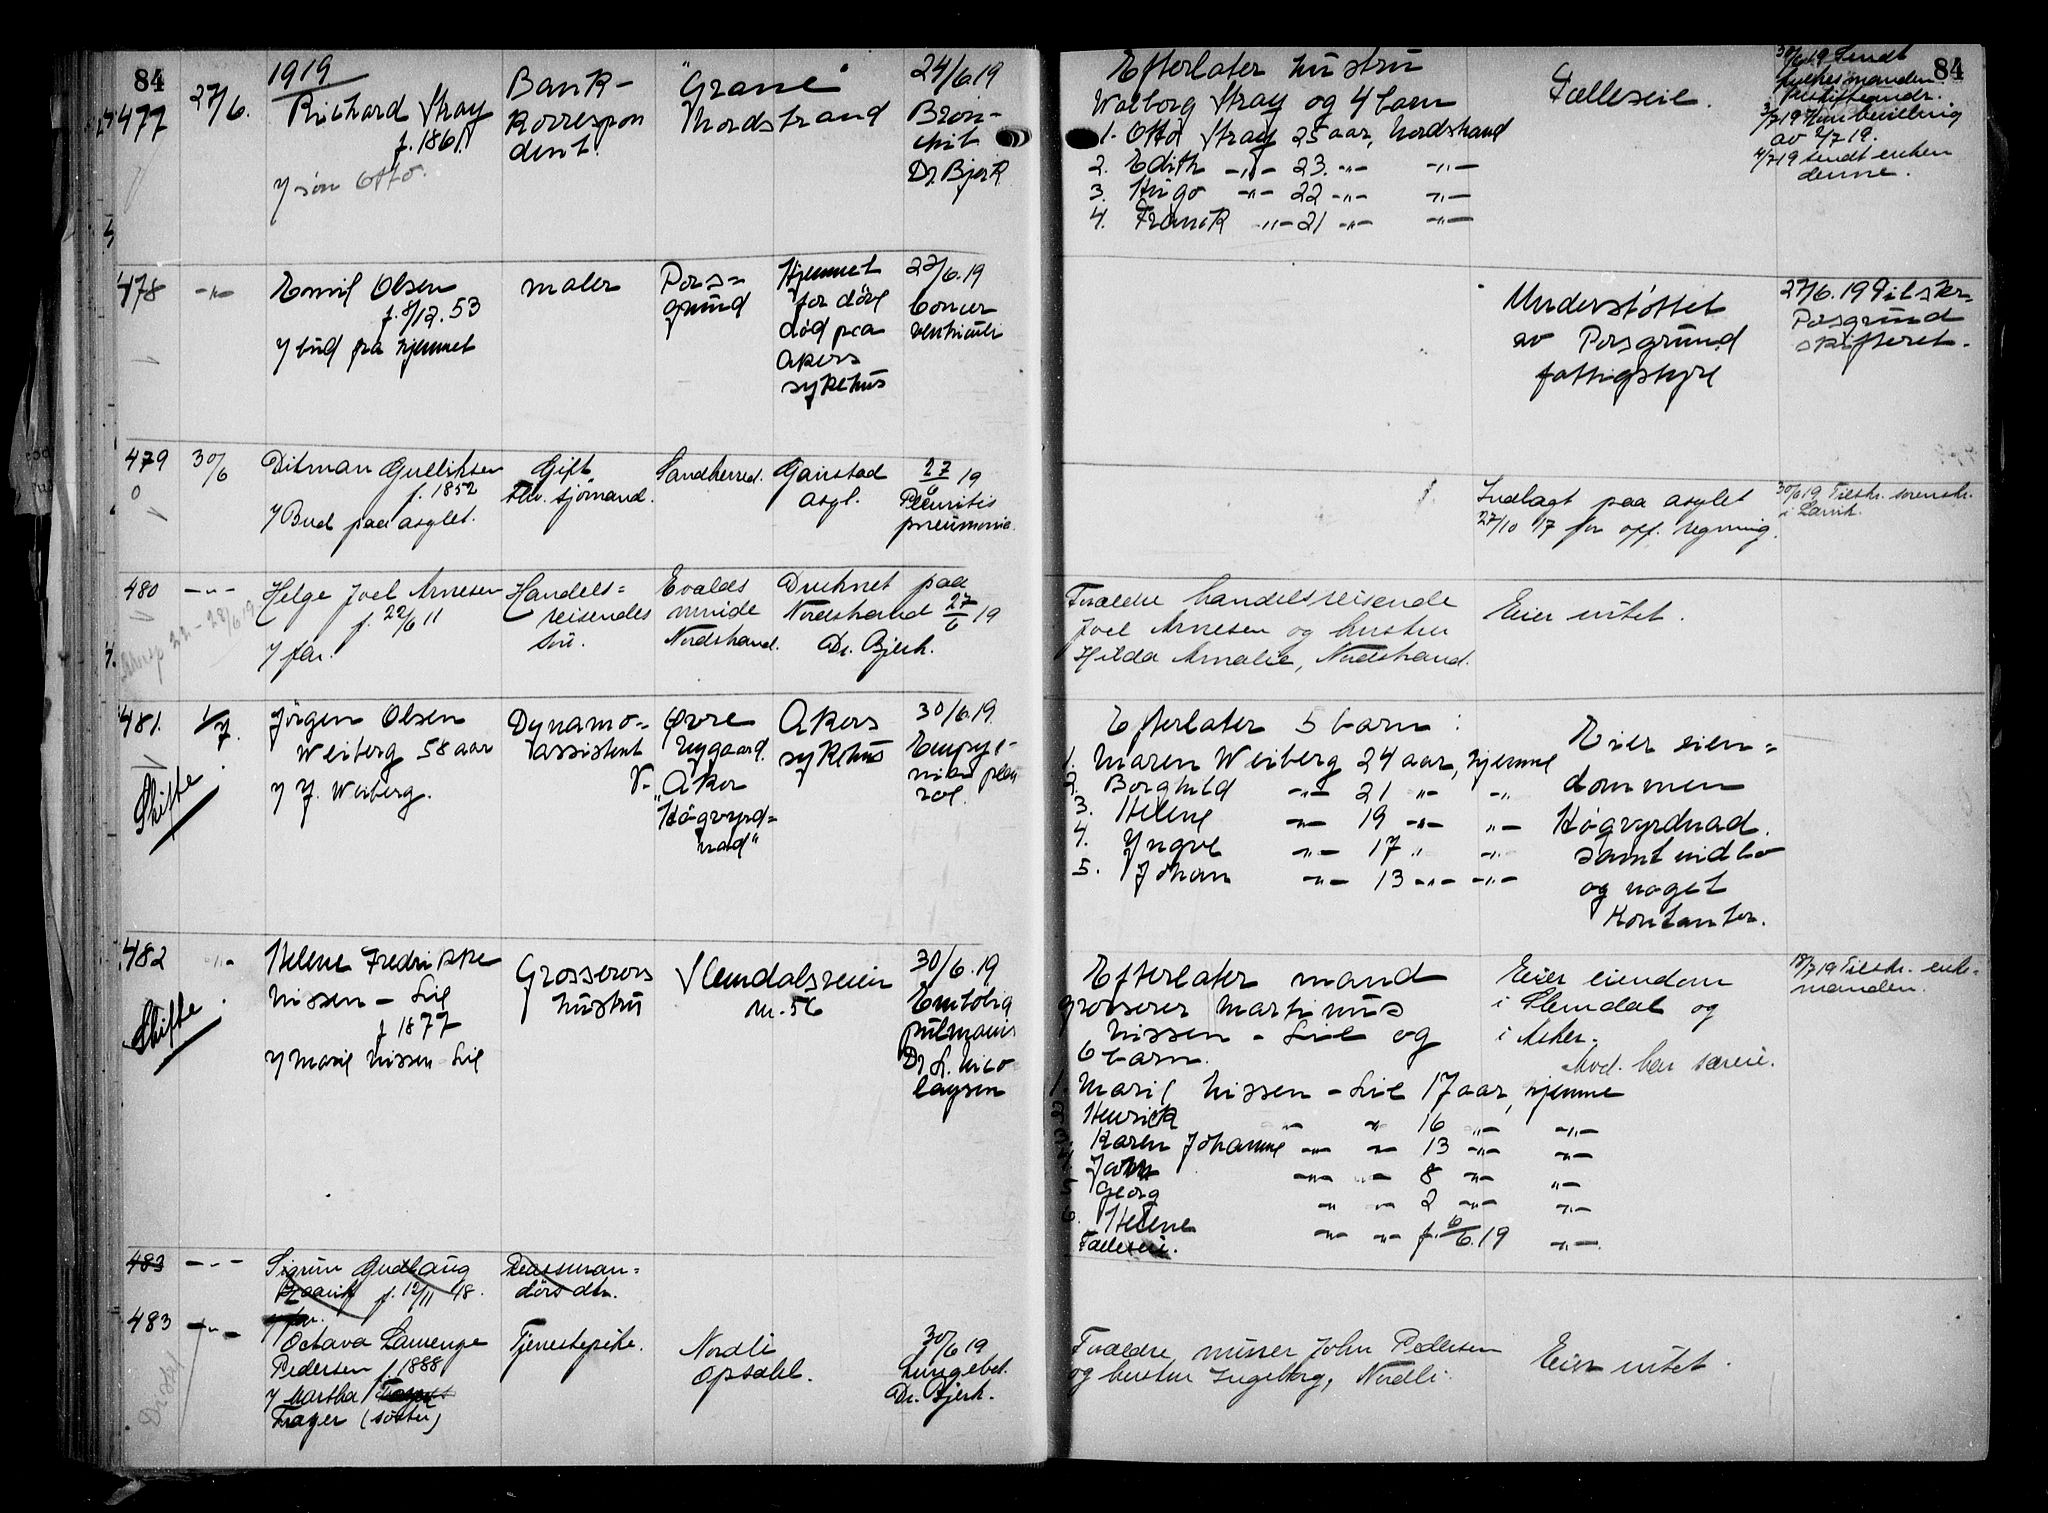 84
1919
477
27/6.
Richard Stray
f. 1861.
/ søn Otto.
Bank-
korrespon
dent.
"Grane"
Nordstrand
24/6.19
Bron-
chit
Dr. Bjerk
Efterlater hustru
Walborg Stray og 4 barn
1. Otto Stray 25 aar, Nordstrand
2. Edith -"- 23 -"- -"-
3. Hugo -"- 22 -"- -"-
4. Franck -"- 21 -"- -"-
Fælleseie.
84
30/6.19 Sendt
3/7 19
av 2/7 19.
4/7 19 sendt enken
denne.
478
-"-
Emil Olsen
f. 8/12.53
/ bud fra hjemmet
maler
Pors-
grund
Hjemmet
for døve
død paa
Akers
sykehus
23/6.19
Cancer
ventriculi
Understøttet
av Porsgrund
fattigstyre
27/6.19 Tilskr.
Porsgrund
skifteret.
479
30/6
Ditman Gulliksen
f. 1852
/ Bud paa asylet.
Gift
fhv. sjömand.
Sandherred.
Gaustad
asyl.
27/6 19
Pleuritis
pneumonia.
Indlagt paa asylet
27/10 17 for off. regning.
30/6 19 Tilskr. sorenskr.
i Larvik.
480
-"-
Helge Joel Arnesen
f. 22/6 11
/ far.
Handels=
reisendes
sön.
Evalds
minde
Nordstrand.
Druknet paa
Nordstrand 27/6 19
Dr. Bjerk.
Forældre handelsreisende
Joel Arnesen og hustru
Hilda Amalie, Nordstrand.
Eier intet.
481.
1/7.
Skifte
Jörgen Olsen
Weiberg 58 aar
/ Y. Weiberg.
Dynamo-
assistent
Øvre
Nygaard.
V. Aker
"Høgvyrd=
nad"
Akers
sykehus
30/6.19.
Empye-
Efterlater 5 barn:
1. Maren Weiberg 24 aar, hjemme
2. Borghild -"- 21 -"- -"-
3. Helene -"- 19 -"- -"-
4. Yngve -"- 17 " -"-
5. Johan -"- 13 -"- -"-
Eier eien=
dommen
Høgvyrdnad.
samt indbo
og noget
kontanter.
482
-"-
Skifte
Helene Fredrikke
Nissen-Lie
f 1877
/ Marie Nissen-Lie
Grosserers
hustru
Slemdalsveien
nr. 56
30/6.19
Emboli
pulmonis
Dr. L. Nico-
laysen
Efterlater mand
grosserer Martinus
Nissen-Lie og
6 barn.
1. Marie Nissen-Lie 17 aar, hjemme
Henrick " " 16 -"- -"-
Karen Johanne -"- -"- 13 -"- -"-
John -"- -"- 8 -"- -"-
Georg " -"- 2 -"- -"-
Helene -"- -"- f. 6/6.19 -"-
Fælleseie.
Eier eiendom
i Slemdal og
i Asker.
Mod. har særeie.
18/7 19 Tilskr. enke-
manden.
483
-"-
Sigrun Gudlaug
f. 12/11 18.
/ far.
dörs dtr.
483
-"-
Octava Laurenze
Pedersen f. 1888
/ Martha
Frager (söster)
Tjenestepike.
Nordli
Opsahl.
30/6 19
Lungebet.
Dr. Bjerk.
Forældre murer John Pedersen
og hustru Ingeborg, Nordli.
Eier intet.